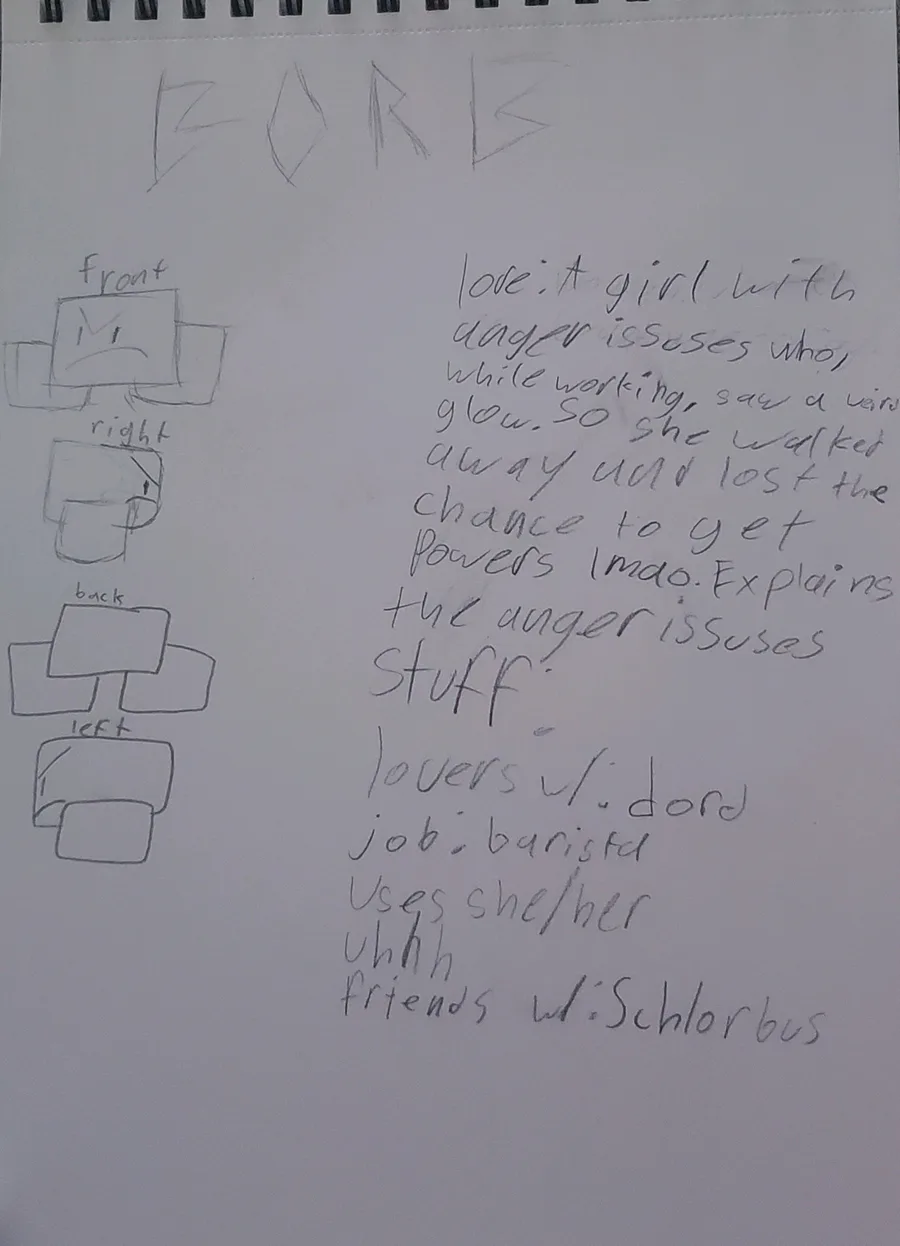 EORB
front
right
back
left
lore: A girl with
anger issuses who,
while working, saw a
glow. So she walked
away and lost the
chance to get
Powers lmao. Explains
the anger issuses
Stuff:
lovers w/: dord
job: barista
Uses she/her
uhhh
friends w/: Schlorbus